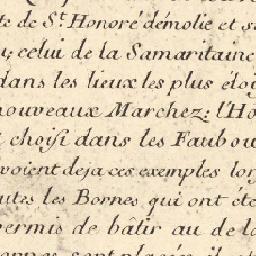 te de S.t Honoré démolie et
celui de la Samaritaine
dans les lieux les plus
nouveaux Marchez; l'Ho
choisi dans les Faubou
voient deja ces exemples lor
utes les Bornes qui ont éte
permis de bâtir au de la